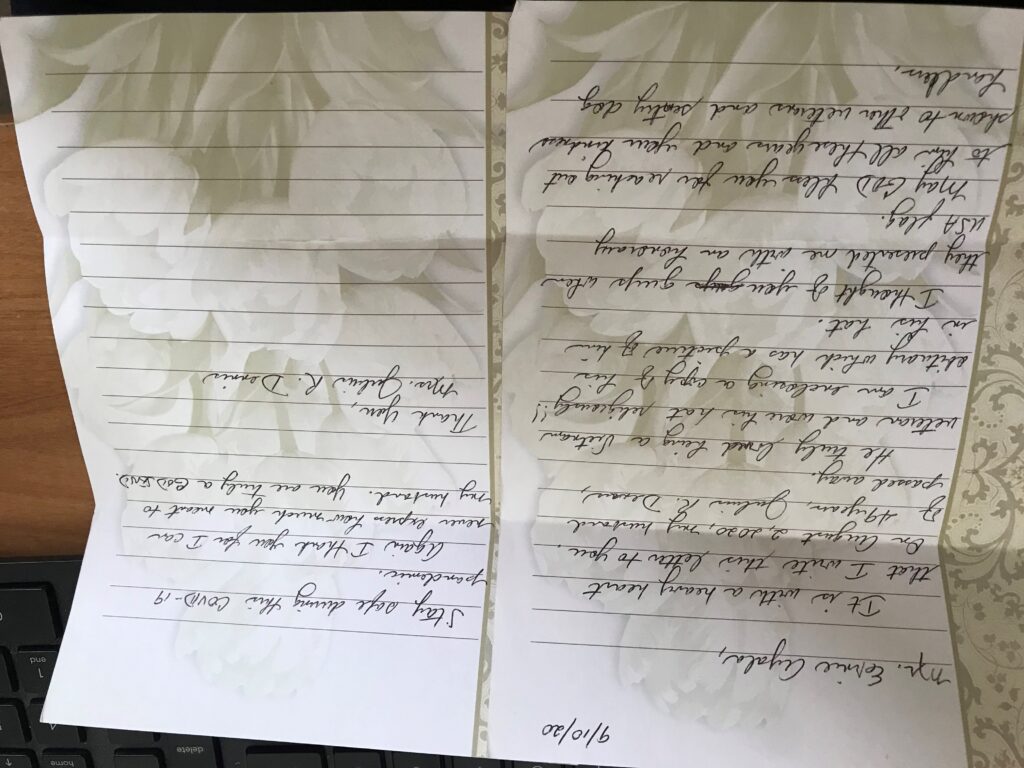 9/10/20
Mr. Ernie Ayala,
It is with a heavy heart
that I write this letter to you.
On August 2, 2020, my husband
of 49 years, Julius R. Dennis,
passed away.
He truly loved being a Vietnam
veteran and wore his hat religiously!!
I am enclosing a copy of his
obituary which has a picture of him
in his hat.
I thought of you guys when
they presented me with an honorary
USA flag.
May GOD bless you for reaching out
to him all these years and your kindness
shown to other veterans and sentry dog
handlers.
Stay safe during this COVID-19
pandemic.
Again I thank you for I can
never express how much you meant to
my husband. You are truly a GOD SEND.
Thank You,
Mrs. Julius R. Dennis
home
delete
1
end